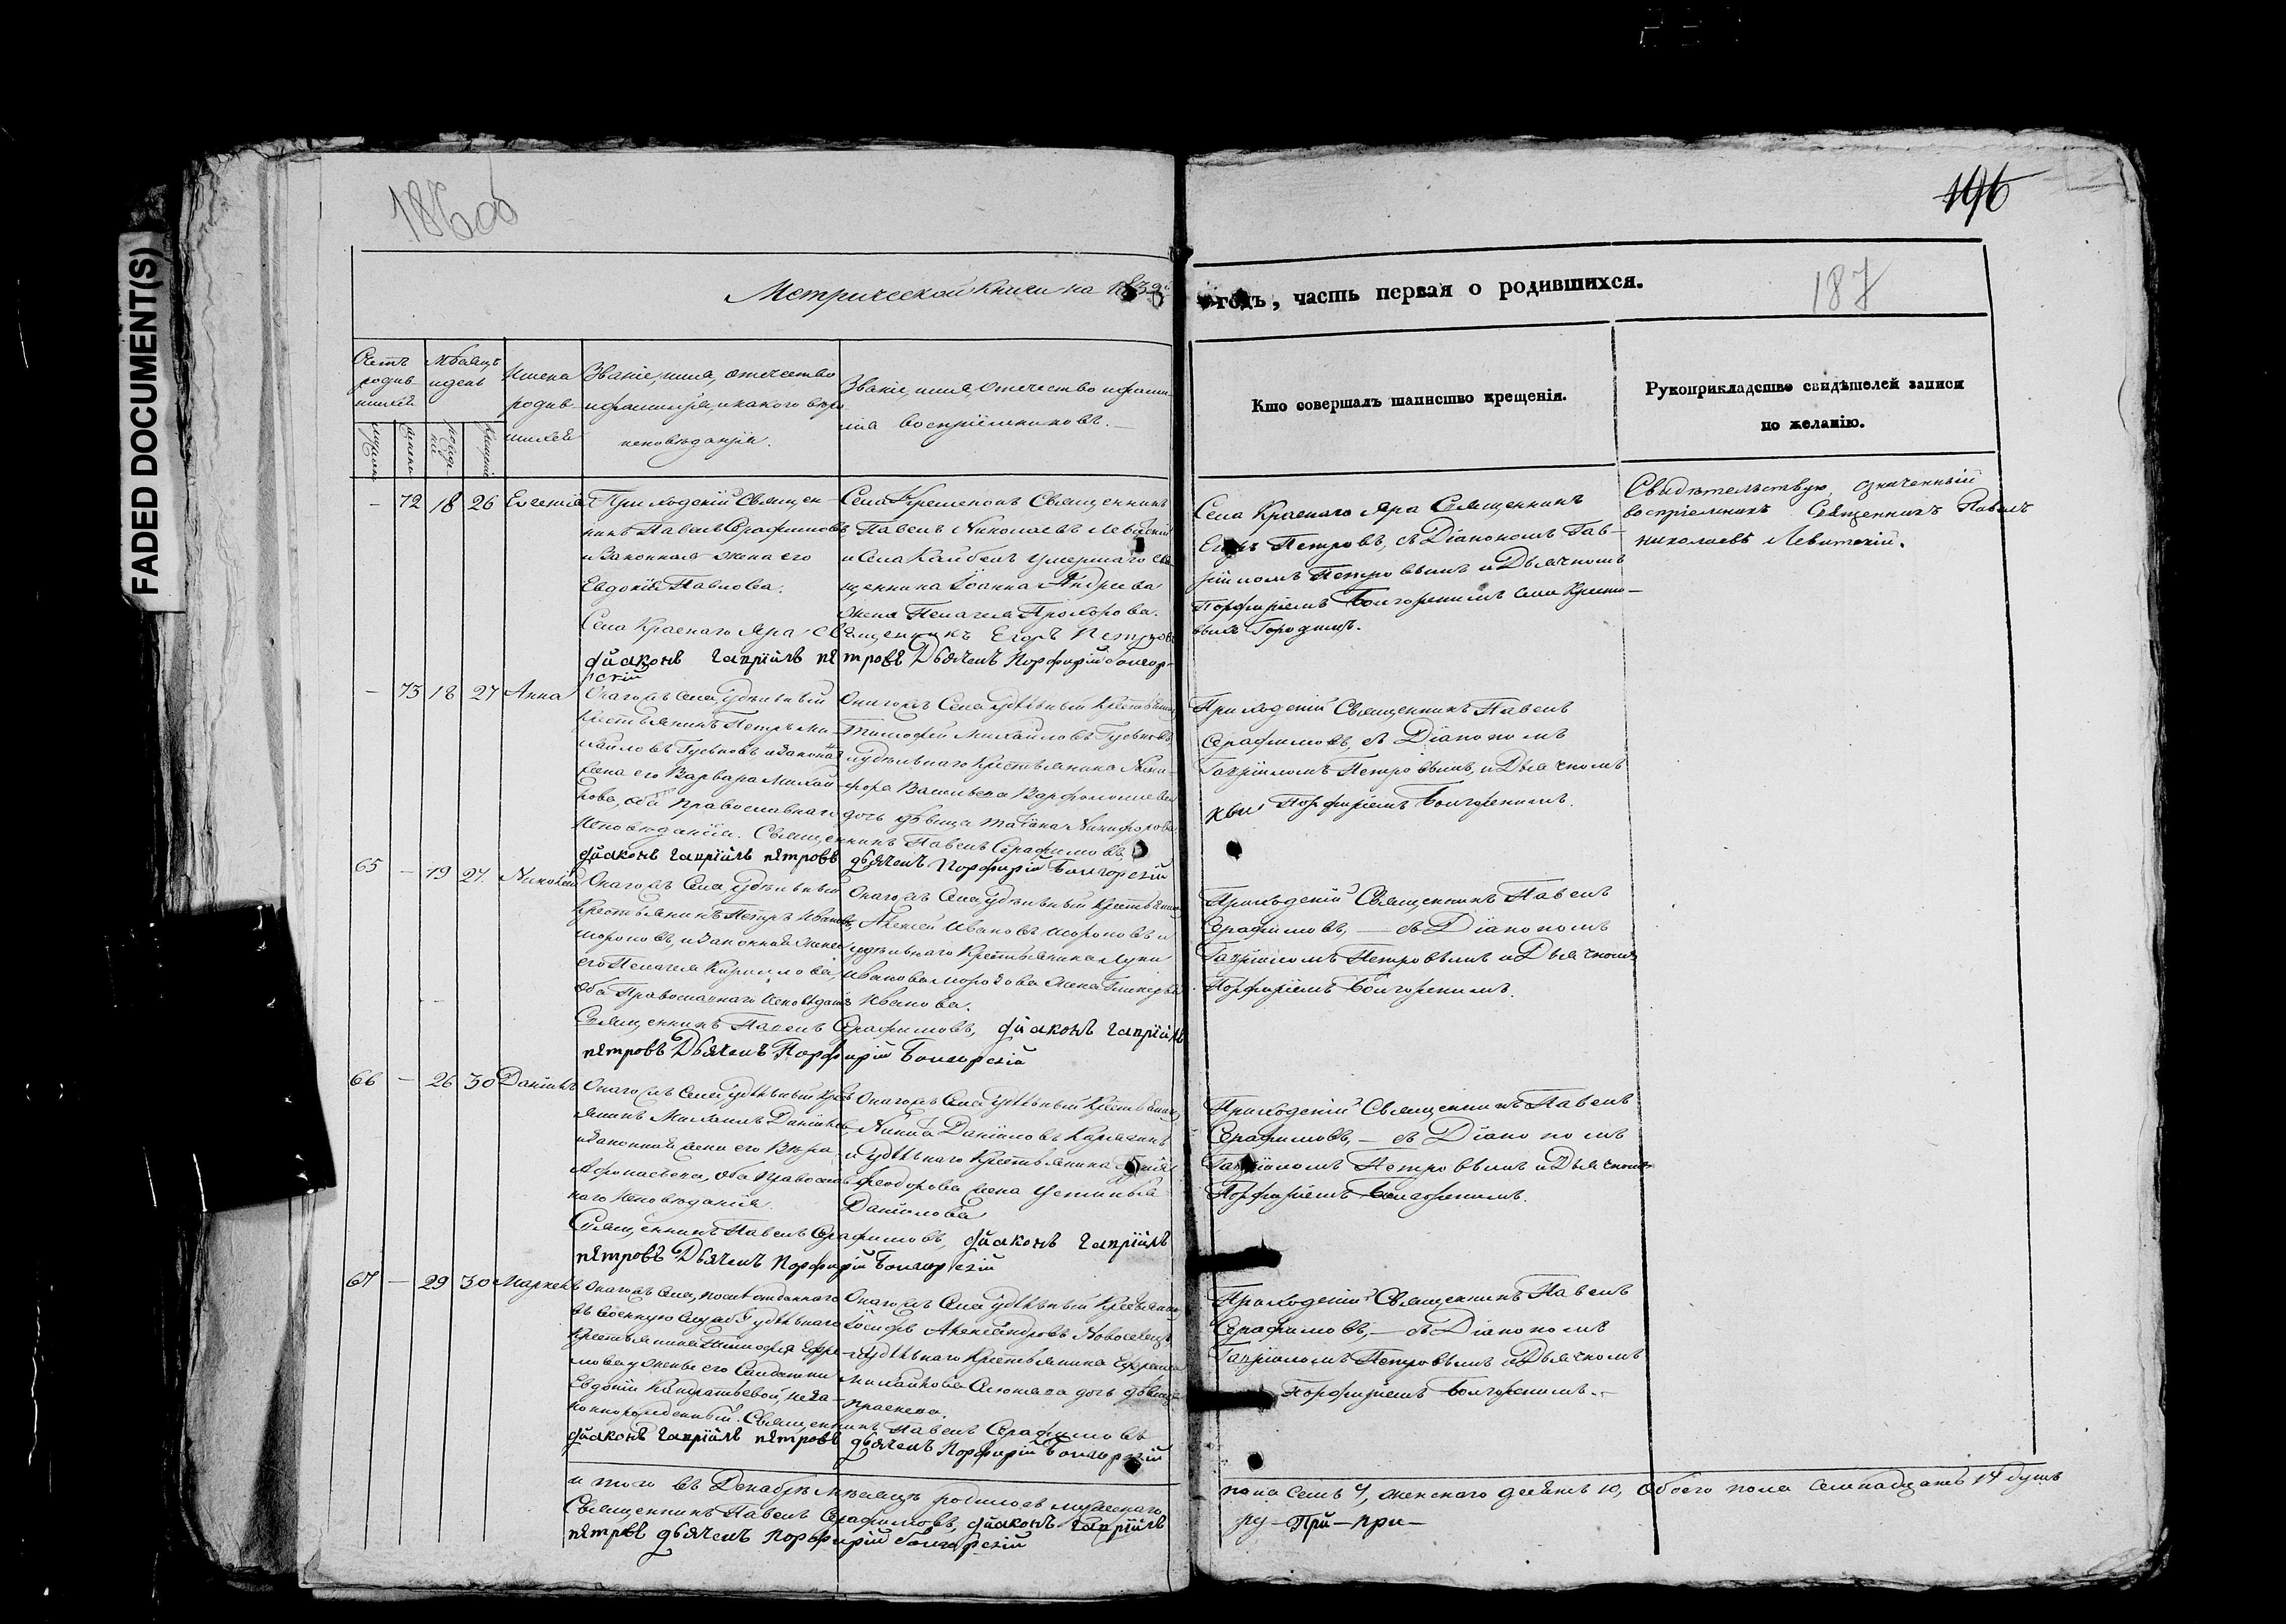 FADED DOCUMENT(S)
186об
196
187
Метрической книги на 1832й
годъ, часть первая о родившихся.
Счетъ родившихся
Мѣсяцъ и день
Имена родившихся
Званіе, имя, отечество и фамилія, и какого вѣроисповѣданія.
Званіе, имя, отечество и фамилія воспріемниковъ.
Кто совершалъ таинство крещенія.
Рукоприкладство свидѣтелей записи
по желанію.
– 72 18 26 Евгенія
Приходскій Священ-
никъ Павелъ Серафимовъ
и законная жена его
Евдокія Павлова.
Села Кременокъ Священникъ
Павелъ Николаевъ Левитскій
и Села Каибелъ умершаго свя
щенника Іоанна Андреева
жена Пелагея Прохорова.
Села Краснаго Яра Священникъ Егоръ Петровъ
діаконъ гавріилъ петровъ Дьячекъ Порфирій Болгор-
скій
Села Краснаго Яра Священникъ
Егоръ Петровъ, съ Діакономъ Гав-
ріиломъ Петровымъ и Дьячкомъ
Порфиріемъ
Свидѣтельствую, означенный
воспріемникъ Священникъ Павелъ
николаевъ Левитскій.
– 73 18 27 Анна
Онагожъ Села, удѣльный
крестьянинъ Петръ Ми-
хайловъ Гуськовъ и законная
жена его Варвара Михай
лова, оба Православнаго
исповѣданія. Священникъ Павелъ Серафимовъ
діаконъ гавріилъ петровъ дьячекъ Порфирій Болгорскій
Онагожъ Села удѣльный крестьянинъ
Тимофей Михайловъ Гуськовъ
и удѣльнаго крестьянина Ники-
фора Васильева Варфоломеева
дочь дѣвица Татіана Никифорова
Приходскій Священникъ Павелъ
Серафимовъ, съ Діакономъ
Гавріиломъ Петровымъ, и Дьячкомъ
Порфиріемъ Болгорскимъ.
65 – 19 27 Николай
Онагожъ Села, удѣльный
крестьянинъ Петръ Ивановъ
и законная жена
его Пелагея Кирилова,
оба Православнаго исповѣданія
Священникъ Павелъ Серафимовъ, діаконъ гавріилъ
петровъ Дьячекъ Порфирій Болгорскій
Онагожъ Села удѣльный крестьянинъ
Алексей Ивановъ и
удѣльнаго крестьянина Луки
Иванова жена
Иванова.
Приходскій Священникъ Павелъ
Серафимовъ, — съ Діакономъ
Гавріиломъ Петровымъ и Дьячкомъ
Порфиріемъ Болгорскимъ.
66 – 26 30 Даніилъ
Онагожъ Села удѣльный крес
янинъ Михаилъ Даниловъ
и законная жена его Вѣра
Афонасьева, оба Православ
наго исповѣданія.
Священникъ Павелъ Серафимовъ, діаконъ гавріилъ
петровъ Дьячекъ Порфирій Болгорскій
Онагожъ Села удѣльный крестьянинъ
Никита Даніиловъ
и удѣльнаго крестьянина
Феодорова жена Устинья
Данилова
Приходскій Священникъ Павелъ
Серафимовъ, — съ Діакономъ
Гавріиломъ Петровымъ и Дьячкомъ
Порфиріемъ Болгорскимъ.
67 – 29 30 Маркелъ
Онагожъ Села, послѣ отданнаго
въ военную службу удѣльнаго
крестьянина Тимофея Ефре-
мова у жены его Салдатки
Евдокіи Кандратьевой, неза-
коннорожденный. Священникъ Павелъ Серафимовъ
діаконъ гавріилъ петровъ дьячекъ Порфирій Болгорскій
Онагожъ Села удѣльный крестьянинъ
Іосифъ Александровъ
и удѣльнаго крестьянина Ефрема
Михайлова дочь дѣвица
Приходскій Священникъ Павелъ
Серафимовъ, — съ Діакономъ
Гавріиломъ Петровымъ и Дьячкомъ
Порфиріемъ Болгорскимъ.
и того въ Декабрѣ мѣсяцѣ родилось мужескаго
пола семь 7, женскаго десять 10, обоего пола семнадцать 17 душъ
Священникъ Павелъ Серафимовъ, діаконъ гавріилъ
петровъ дьячекъ Порфирій Болгорскій
ру – При – при –